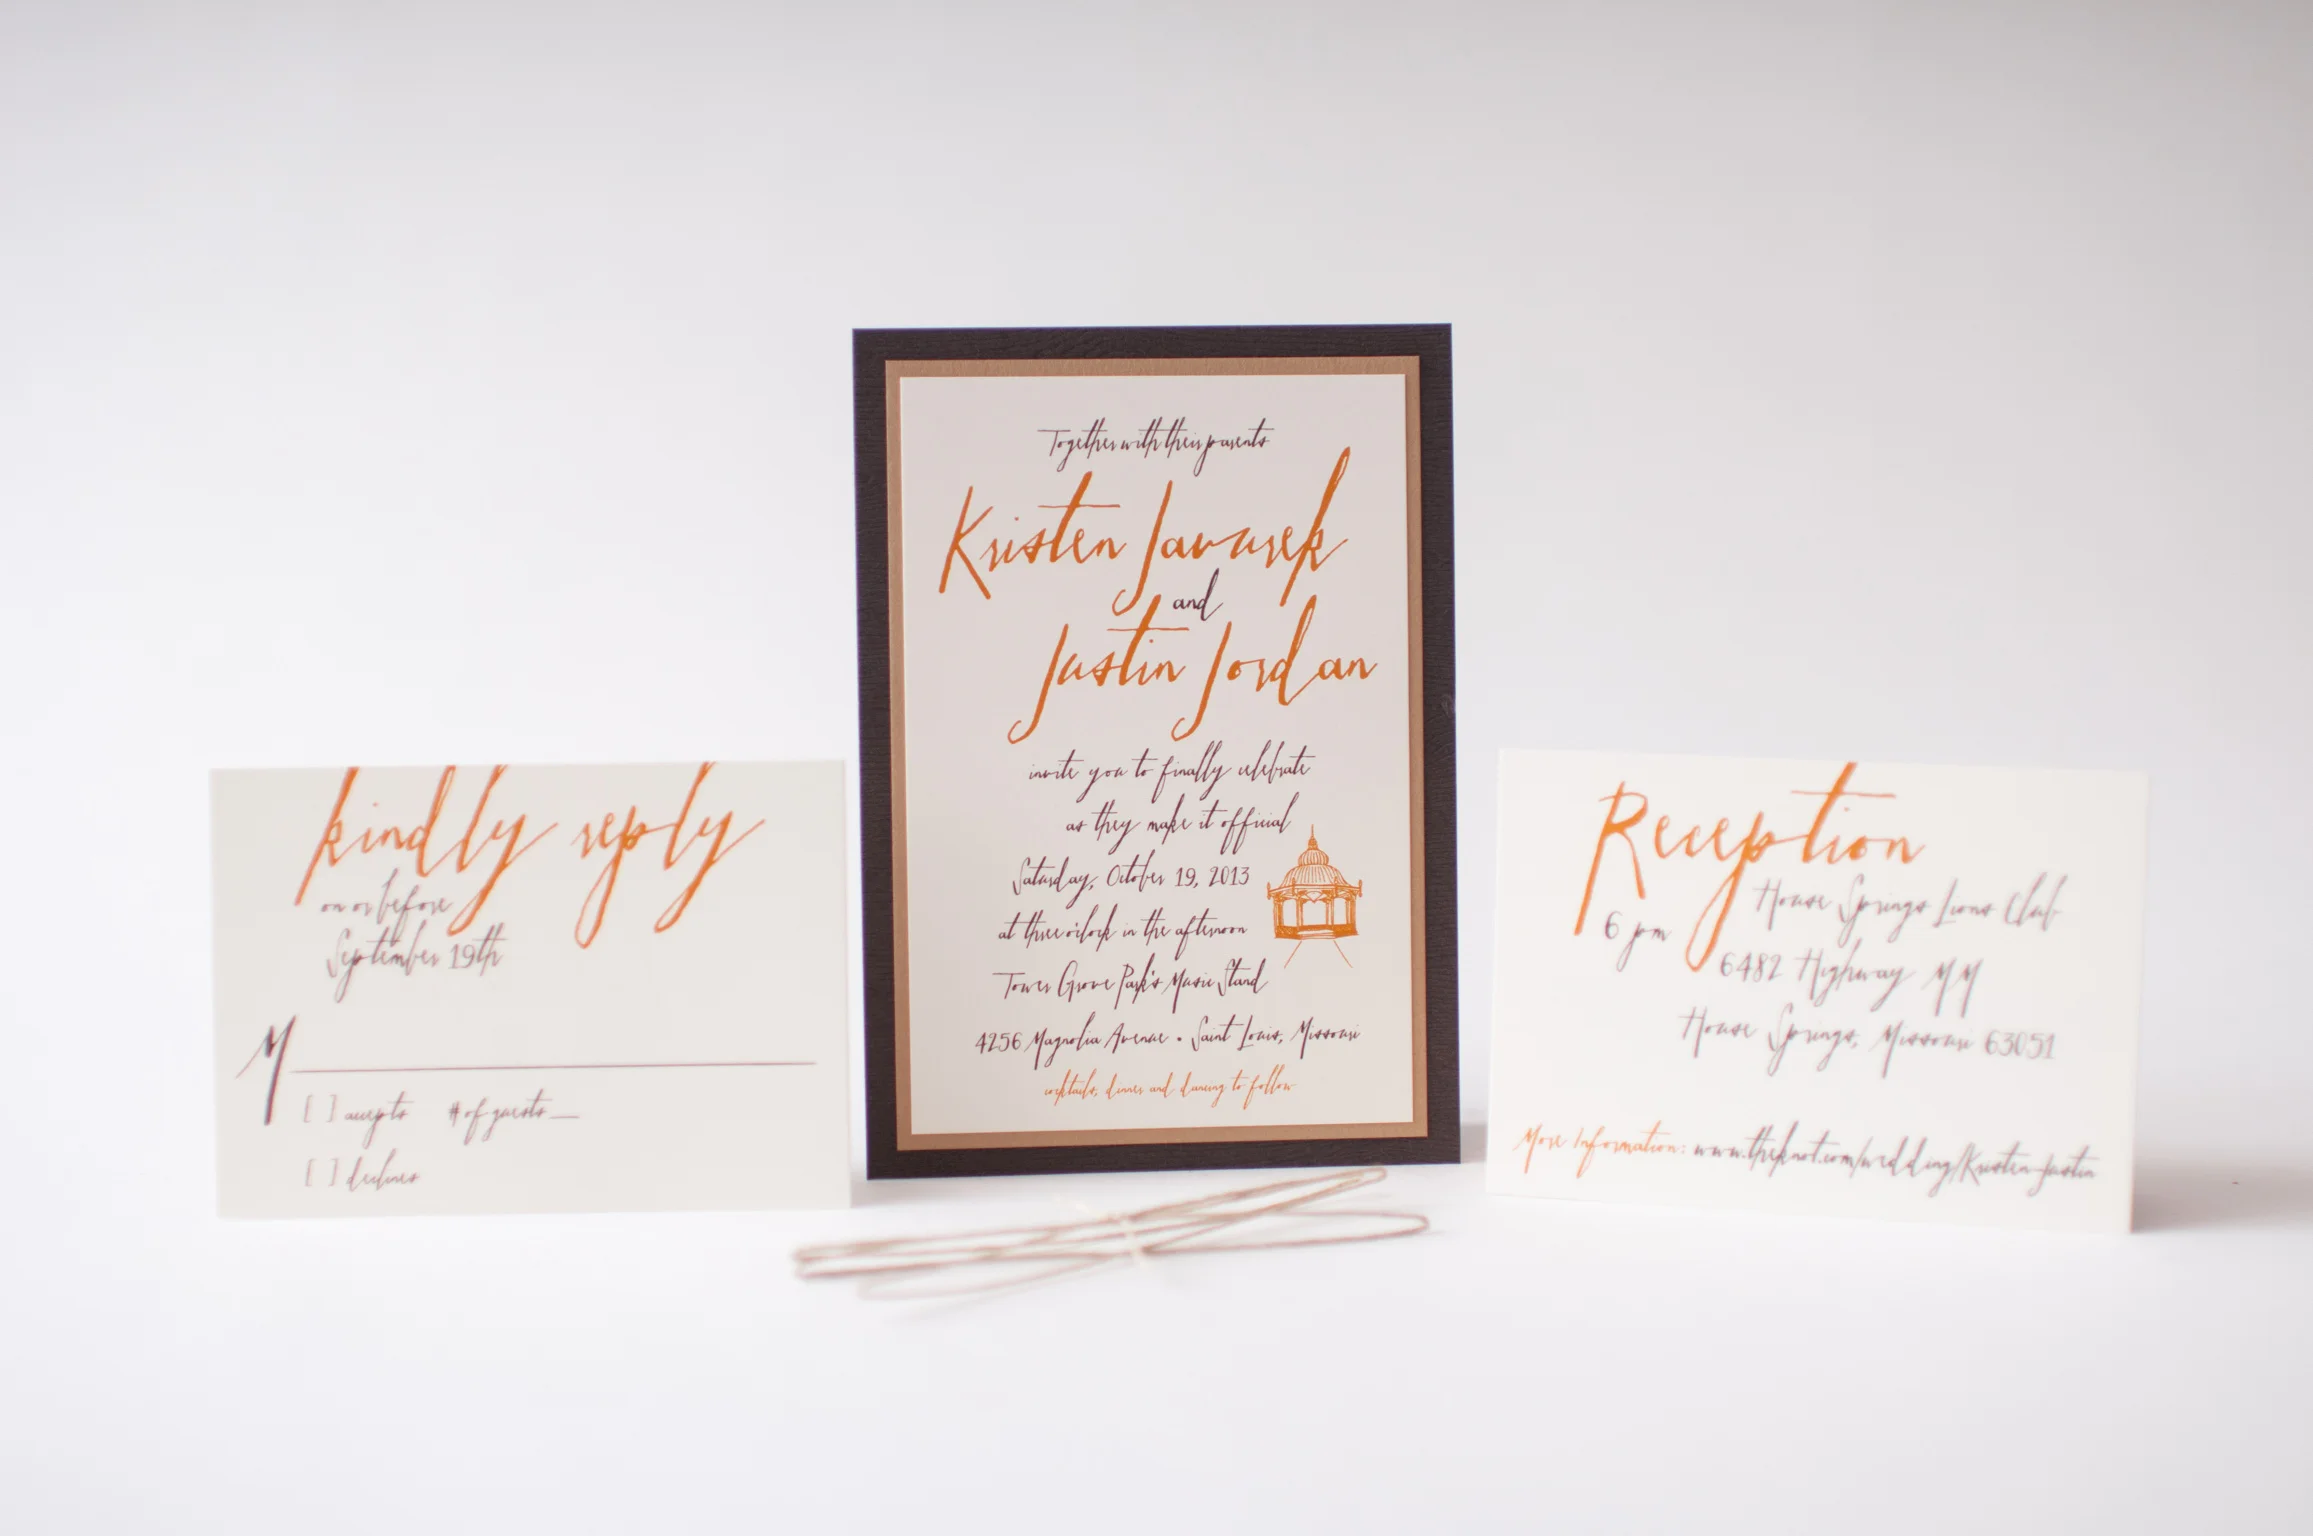 kindly reply
on or before
September 19th
M
[ ] accepts # of guests
[ ] declines
Together with their parents
Kristen Javurek
and
Justin Jordan
invite you to finally celebrate
as they make it official
Saturday, October 19, 2013
at three o'clock in the afternoon
Tower Grove Park's Music Stand
4256 Magnolia Avenue • Saint Louis, Missouri
cocktails, dinner and dancing to follow
Reception
6 pm House Springs Lions Club
6482 Highway MM
House Springs, Missouri 63051
More Information: www.theknot.com/wedding/Kristen-Justin